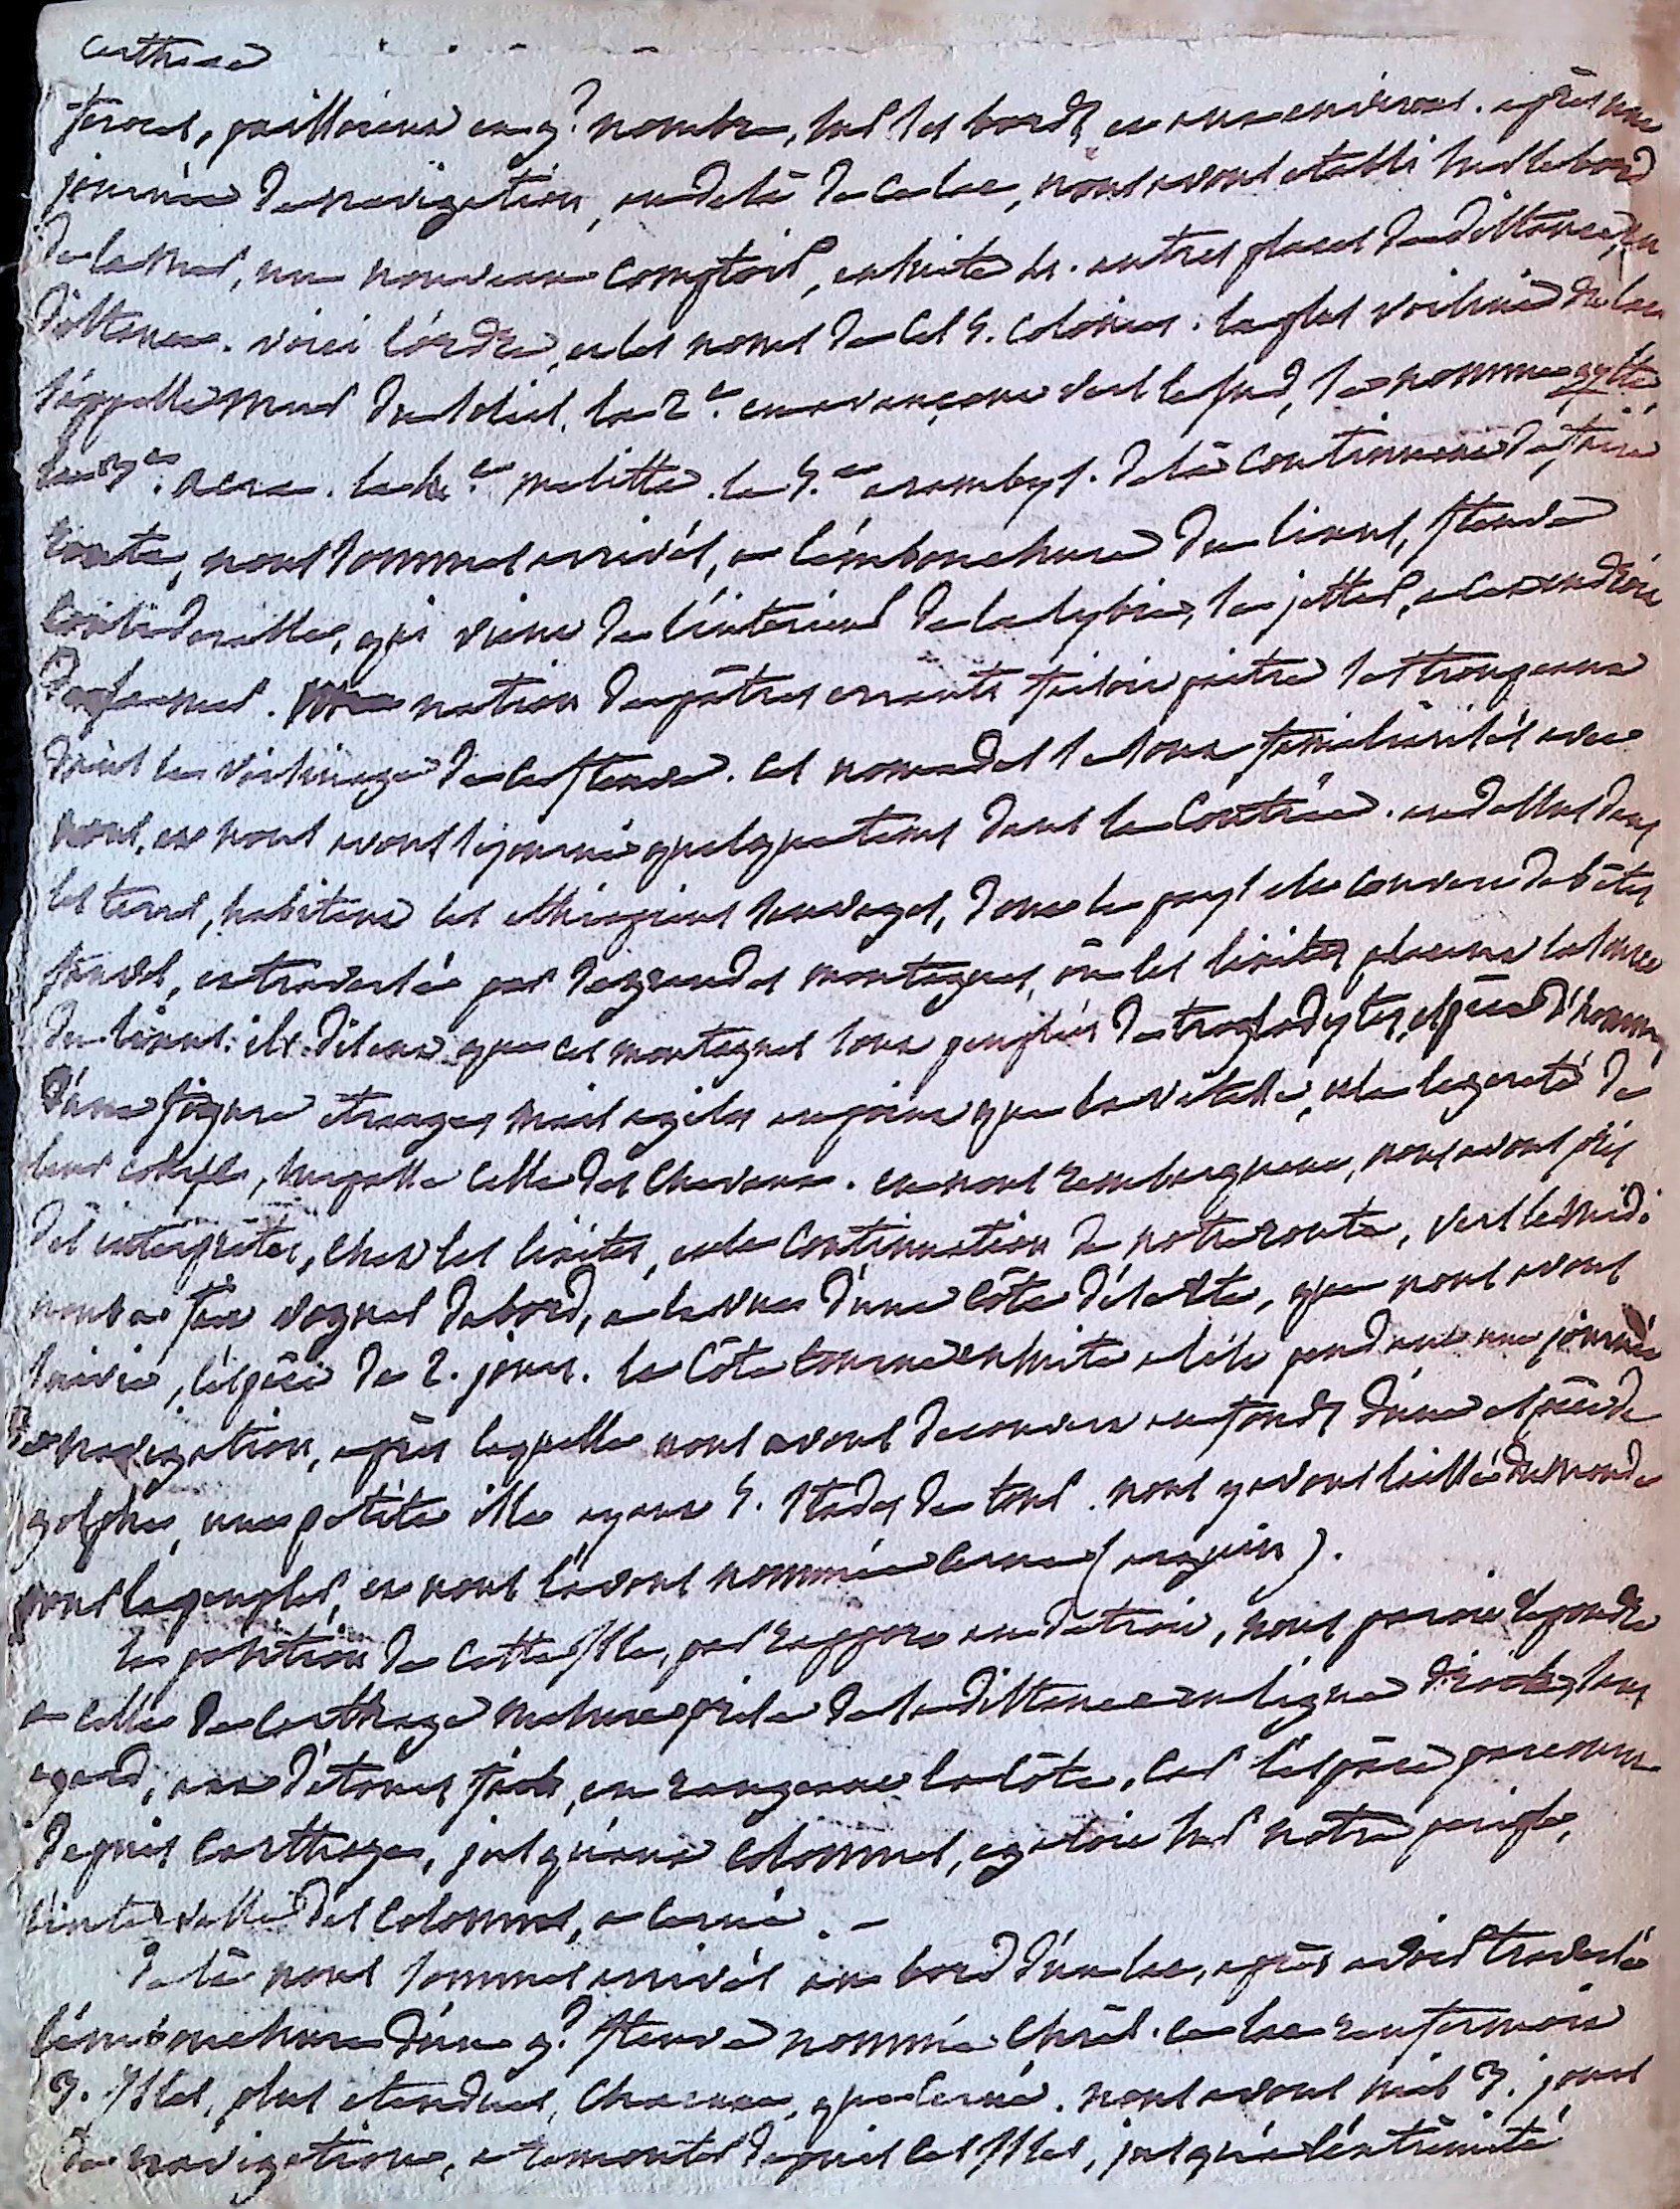 carthage
feroces, paissoient en g.d nombre, sur les bords et aux environs. après une
journée de navigation, au dela de ce lac, nous avons etabli sur le bord
de la mer, un nouveau comptoir, ensuite 4. autres places de distance, en
distance. voici l'ordre, et les noms de ces 5. colonies. la plus voisine du lac
s'appelle mur du soleil. la 2.e en avançant vers le sud, se nomme gytte,
la 3.e acra. la 4.e melitta. la 5.e arambys. de là continuant de faire
route, nous sommes arrivés, a l'embouchure du lixus, fleuve
considerable, qui vient de l'interieur de la lybie, se jetter, a cet endroit
dans la mer. une nation de pâtres errants faisoit paitre ses troupeaux
dans le voisinage de ce fleuve. ces nomades se sont familiarisés avec
nous, et nous avons sejourné quelque tems dans la contrée. au dessus dans
les terres, habitent les ethiopiens sauvages, dont le pays est couvert de bêtes
feroces, et traversée par de grandes montagnes, où les lixites placent la source
du lixus. ils disent que ces montagnes sont peuplées de troglodytes, espèce d'hommes
d'une figure etrange, mais agiles au point que la vitesse, et la legereté de
leur course, surpasse celle des chevaux. en nous rembarquant, nous avons pris
des interpretes, chez les lixites, et la continuation de notre route, vers le midi
nous a fait voguer d'abord, a la vue d'une côte déserte, que nous avons
suivie, l'espace de 2. jours. la côte tourne ensuite a l'est pendant une journée
de navigation, après laquelle nous avons decouvert au fonds d'une espèce de
golphe, une petite isle ayant 5. stades de tour. nous y avons laissé du monde
pour la peupler, et nous l'avons nommée cerne (arguin).
la position de cette isle, par rapport au detroit, nous paroit repondre
a celle de carthage mesure prise de la distance en ligne droite, sans
egard, aux détours faits, en rangeant la côte, car l'espace parcouru
depuis carthage, jusqu'aux colonnes, egaloit sur notre periple,
l'intervalle des colonnes, a cerné. -
de là nous sommes arrivés au bord d'un lac, après avoir traversé
l'embouchure d'un g.d fleuve nommé chrès. ce lac renfermoit
3. isles, plus etendues, chacune, que cerné. nous avons mis 3. jours
de navigation, a remonter depuis ces isles, jusqu'a l'extrêmité